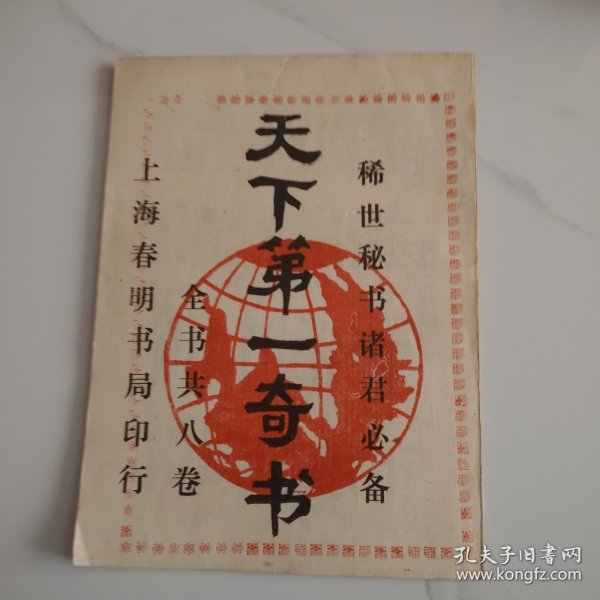 稀世秘书诸君必备
天下第一奇书
全书共八卷
上海春明书局印行
孔夫子旧书网
www.kongfz.com